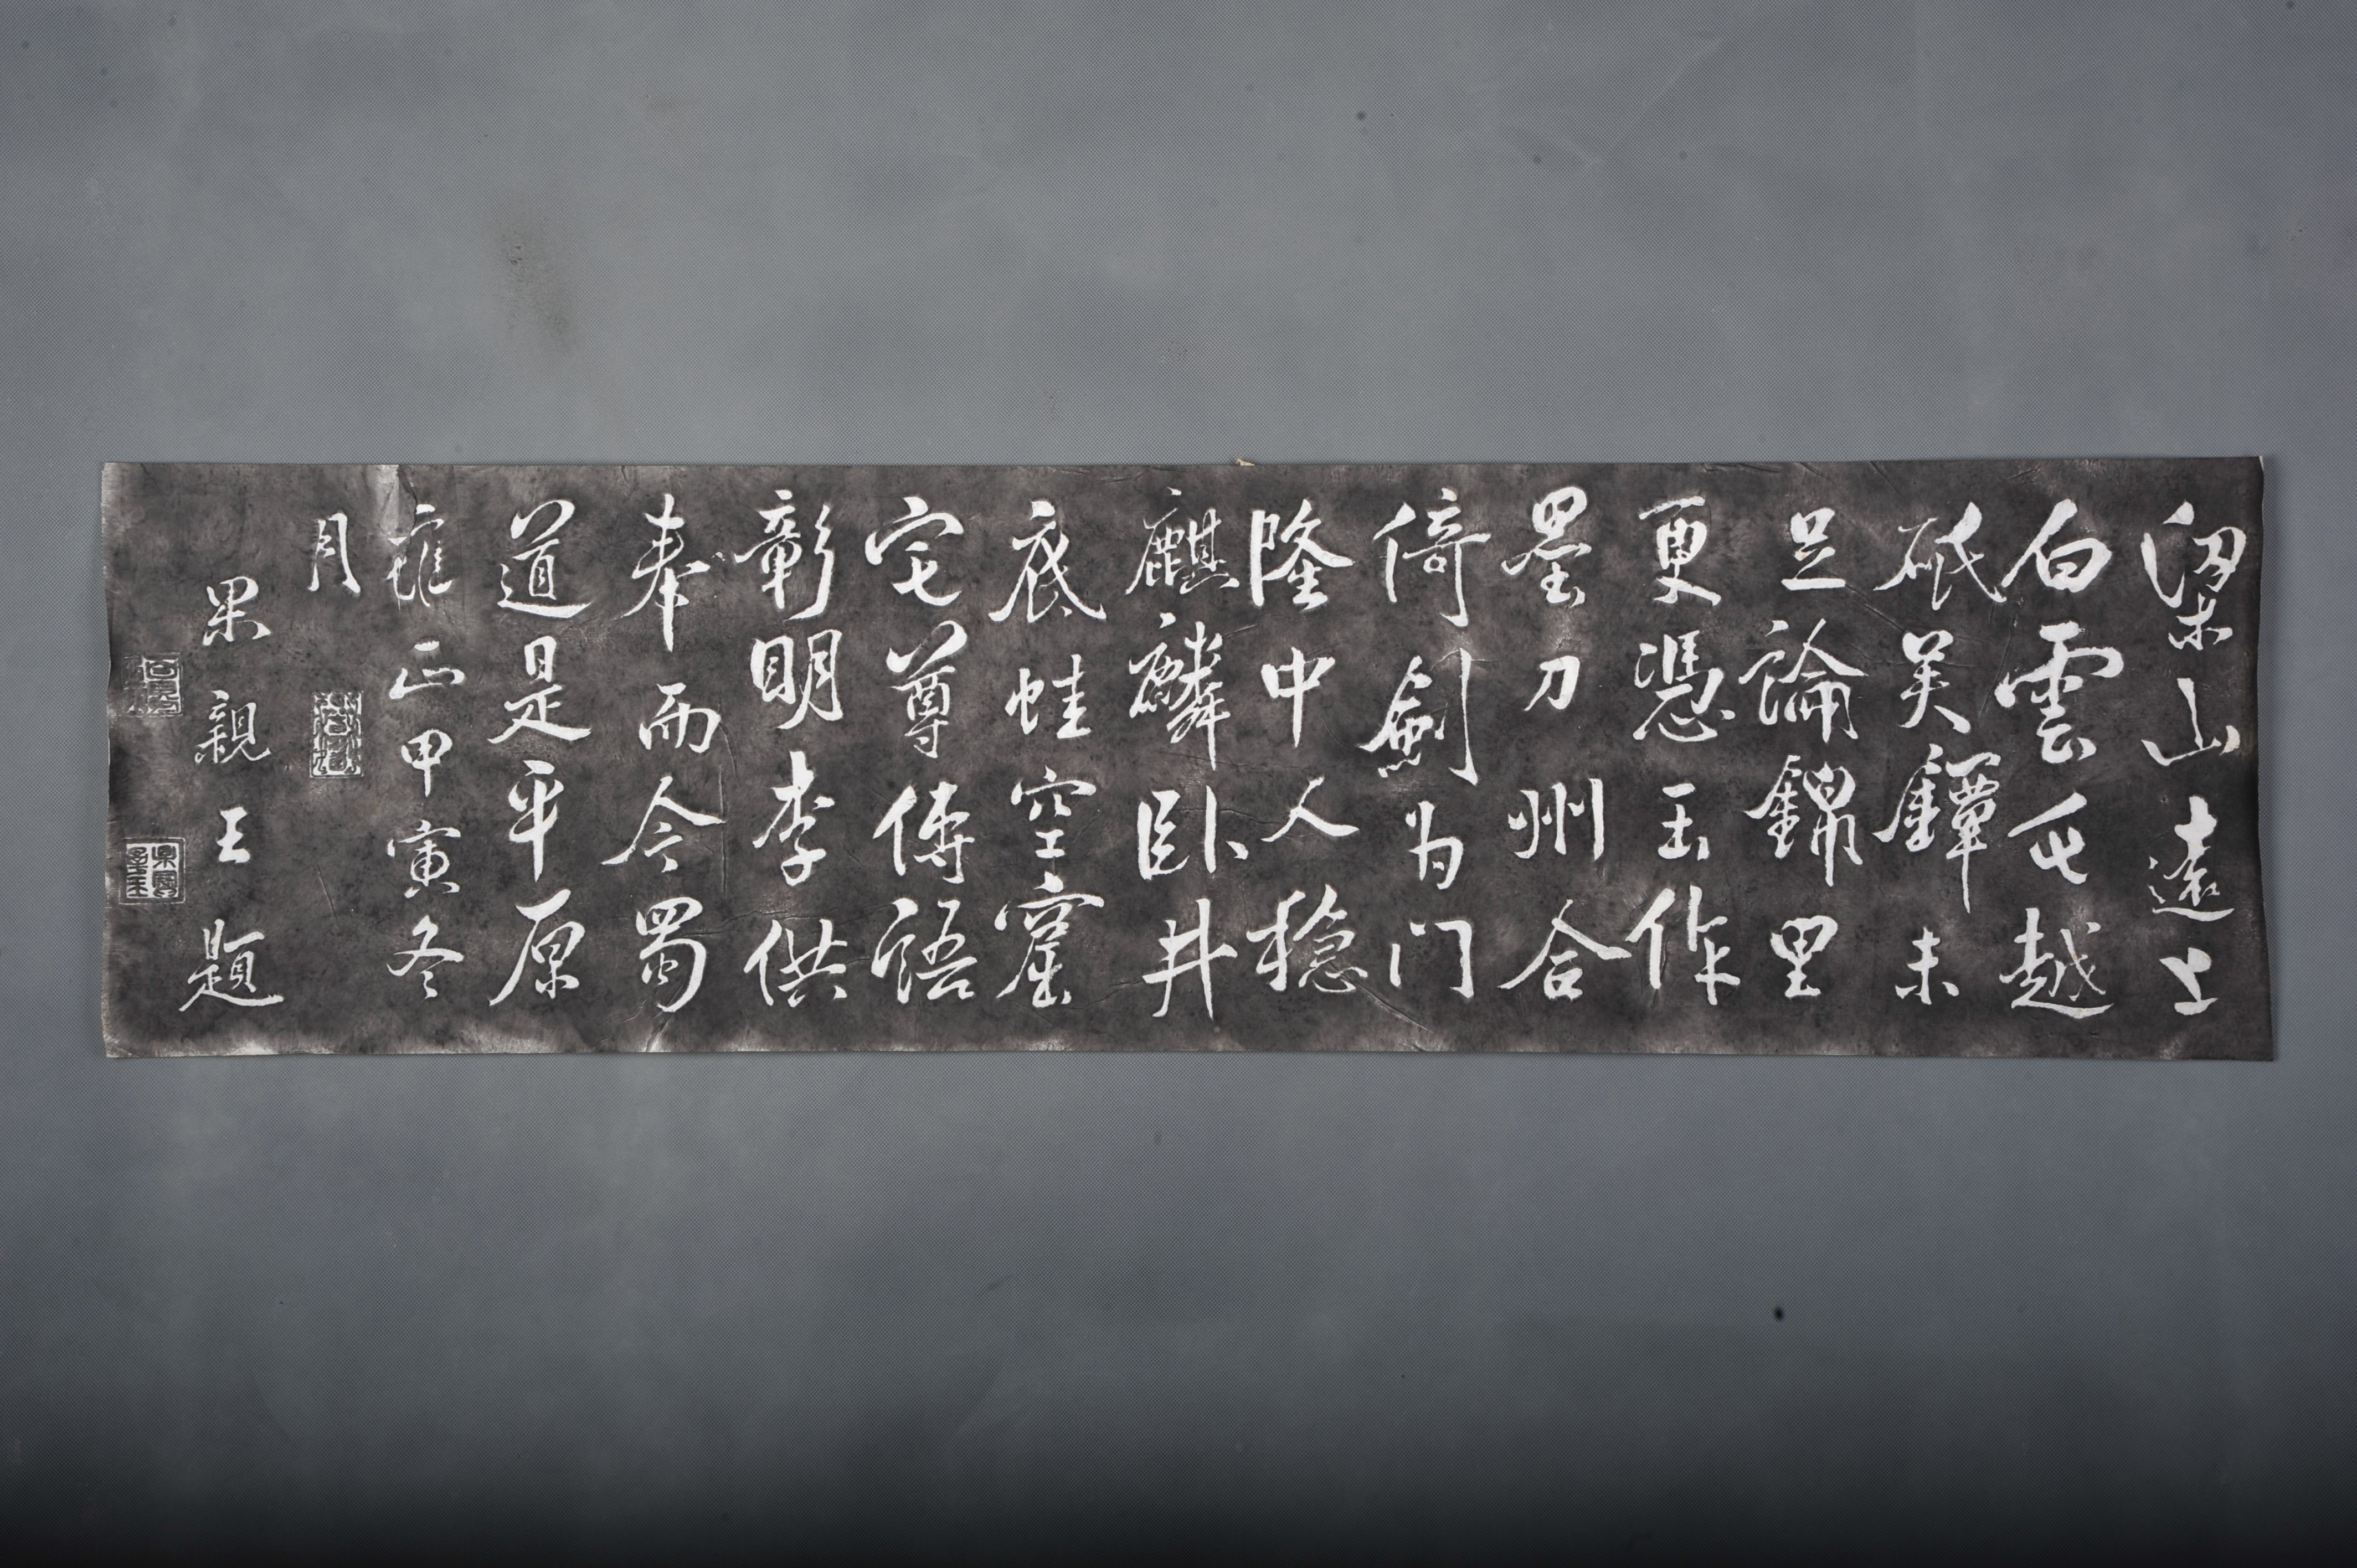 梁山遠上
白雲屯越
砥吴鐔未
足論錦里
更憑玉作
塁刀州合
倚劍为门
隆中人穩
麒麟卧井
底蛙空窟
宅尊傳語
彰明李供
奉而今蜀
道是平原
雍正甲寅冬
月
果親王題